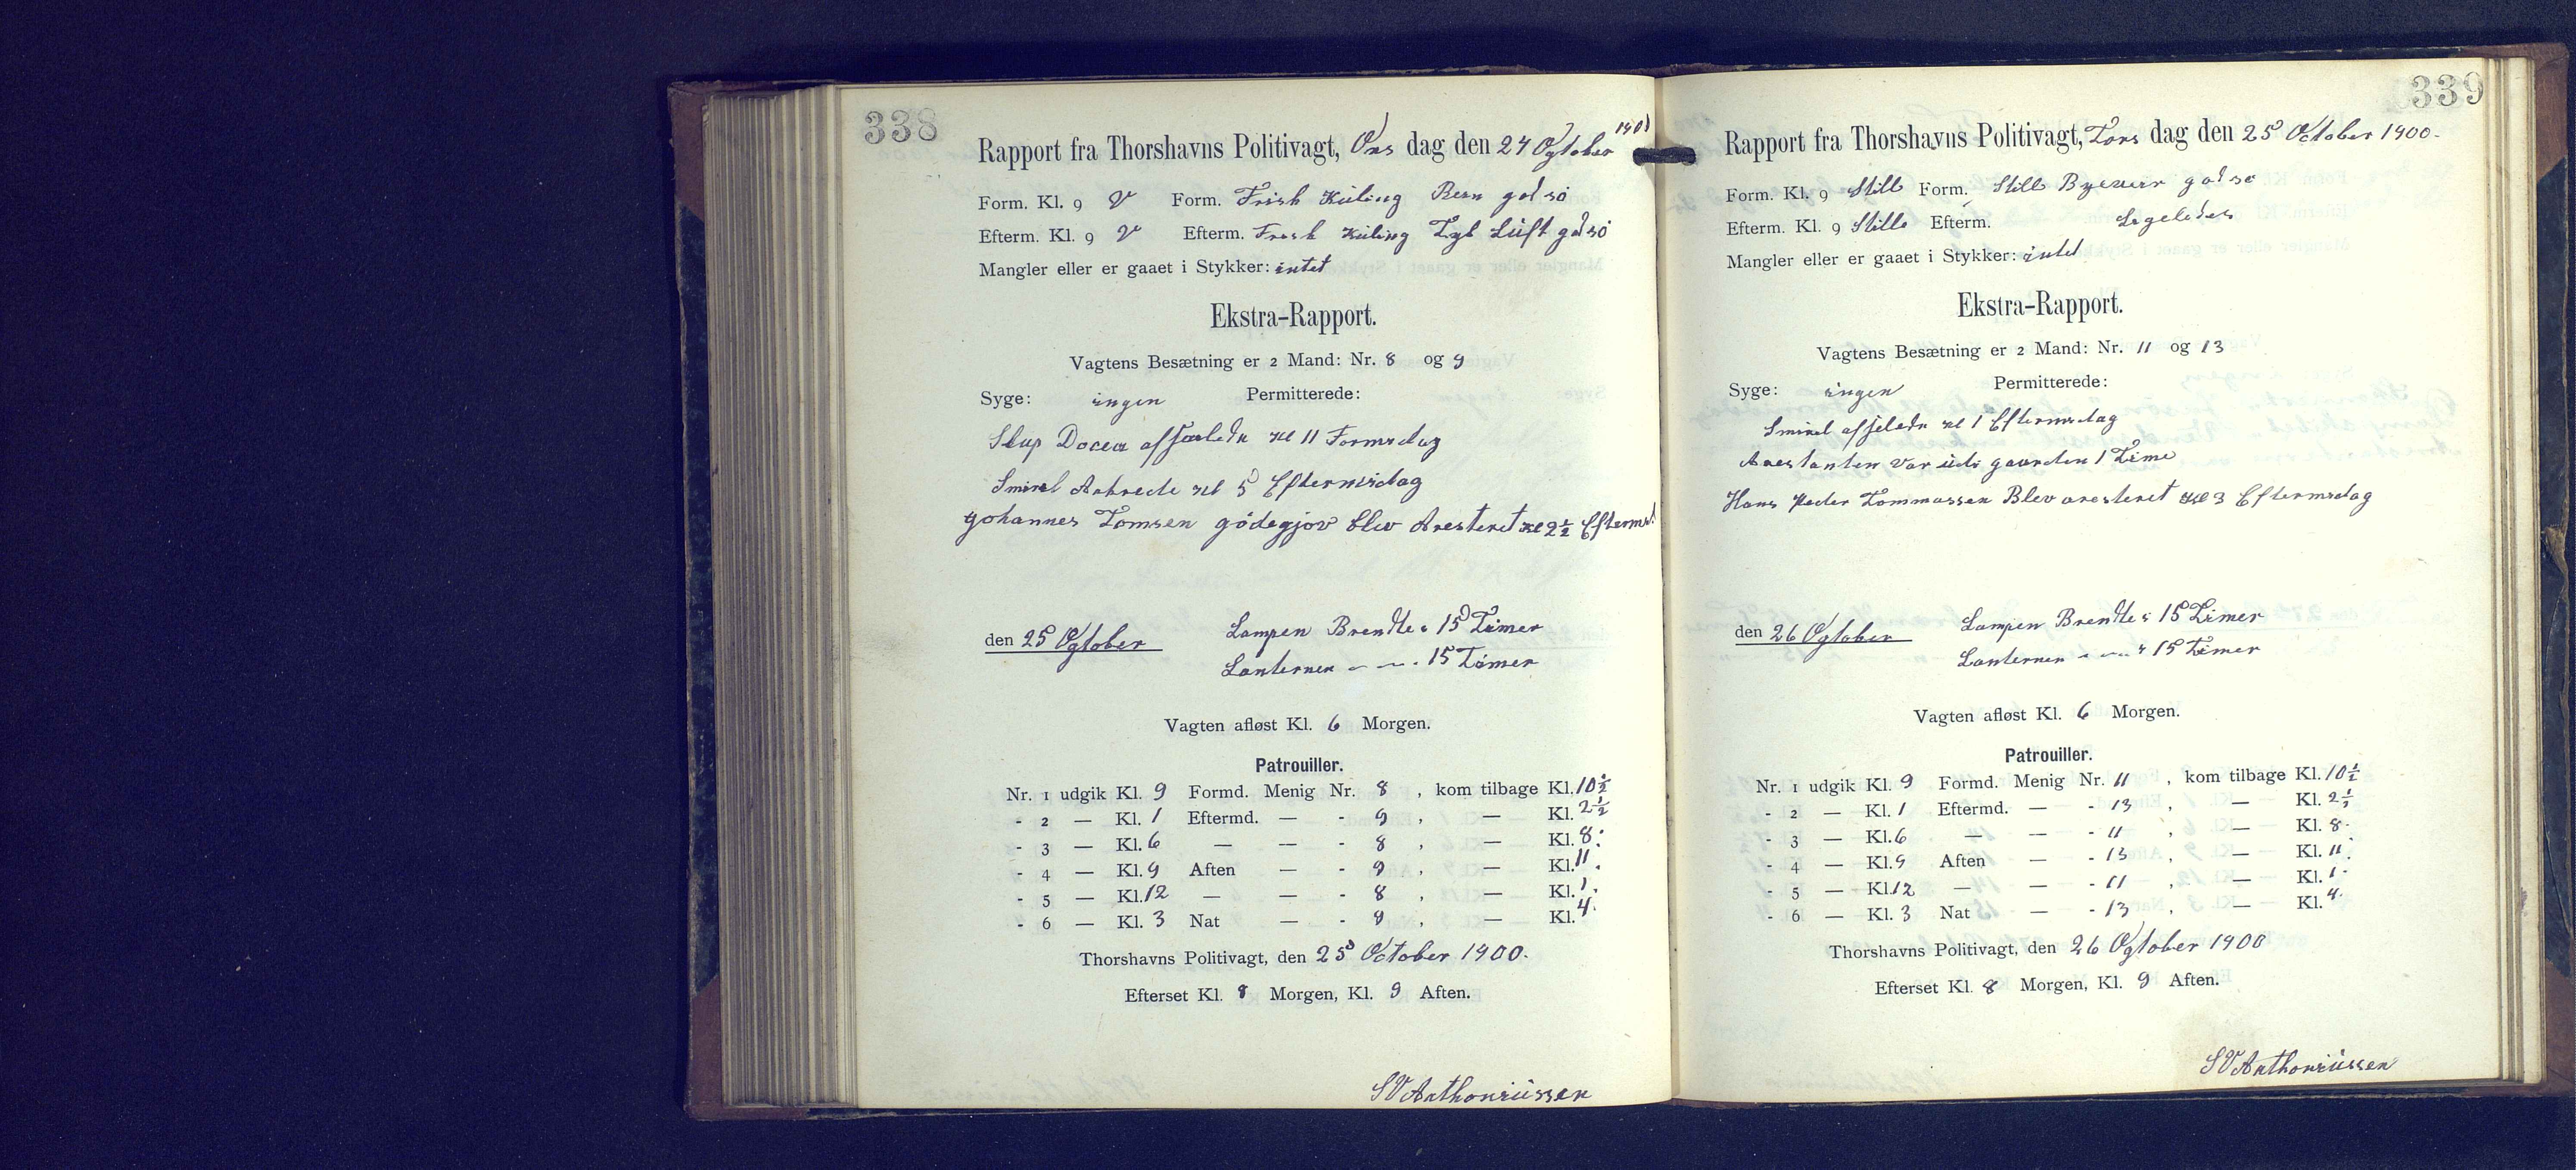 338
Rapport fra Thorshavns Politivagt, Ons dag den 24 Ogtober 1900
Form. Kl. 9 V Form. Frisk Kuling Ren god sö
Efterm. Kl. 9 V Efterm. Frisk Kuling Tyk Luft god sö
Mangler eller er gaaet i Stykker: intet
Ekstra-Rapport.
Vagtens Besætning er 2 Mand: Nr. 8 og 9
Syge: ingen Permitterede:
Slup Docea Kl 11 Formidag
Smiril Ankrede Kl 5 Eftermidag
Johannes Tomsen gödegjov blev Aresteret Kl 2½ Eftermd
den 25 Ogtober Lampen Brendte i 15 Timer
Lanternen - - - 15 Timer
Vagten afløst Kl. 6 Morgen.
Patrouiller.
Nr. 1 udgik Kl. 9 Formd. Menig Nr. 8 , kom tilbage Kl. 10½
- 2 — Kl. 1 Eftermd. — - 9 , — Kl. 2½
- 3 — Kl. 6 — — - 8 , — Kl. 8.
- 4 — Kl. 9 Aften — - 9 , — Kl. 11.
- 5 — Kl. 12 — — - 8 , — Kl. 1.
- 6 — Kl. 3 Nat — - 9 , — Kl. 4.
Thorshavns Politivagt, den 25 October 1900.
Efterset Kl. 8 Morgen, Kl. 9 Aften.
SVAnthoniussen
339
Rapport fra Thorshavns Politivagt, Tors dag den 25 October 1900.
Form. Kl. 9 Stille Form. Stille god sö
Efterm. Kl. 9 Stille Efterm. Ligeledes
Mangler eller er gaaet i Stykker: intet
Ekstra-Rapport.
Vagtens Besætning er 2 Mand: Nr. 11 og 13
Syge: ingen Permitterede:
Smiril afseilede Kl 1 Eftermidag
Arestanten var udi gaarden 1 Time
Hans Peder Tommassen Blev aresteret Kl 3 Eftermidag
den 26 Ogtober Lampen Brendte i 15 Timer
Lanternen - - - 15 Timer
Vagten afløst Kl. 6 Morgen.
Patrouiller.
Nr. 1 udgik Kl. 9 Formd. Menig Nr. 11 , kom tilbage Kl. 10½
- 2 — Kl. 1 Eftermd. — - 13 , — Kl. 2½
- 3 — Kl. 6 — — - 11 , — Kl. 8.
- 4 — Kl. 9 Aften — - 13 , — Kl. 11.
- 5 — Kl. 12 — — - 11 , — Kl. 1.
- 6 — Kl. 3 Nat — - 13 , — Kl. 4.
Thorshavns Politivagt, den 26 Ogtober 1900
Efterset Kl. 8 Morgen, Kl. 9 Aften.
SVAnthoniussen